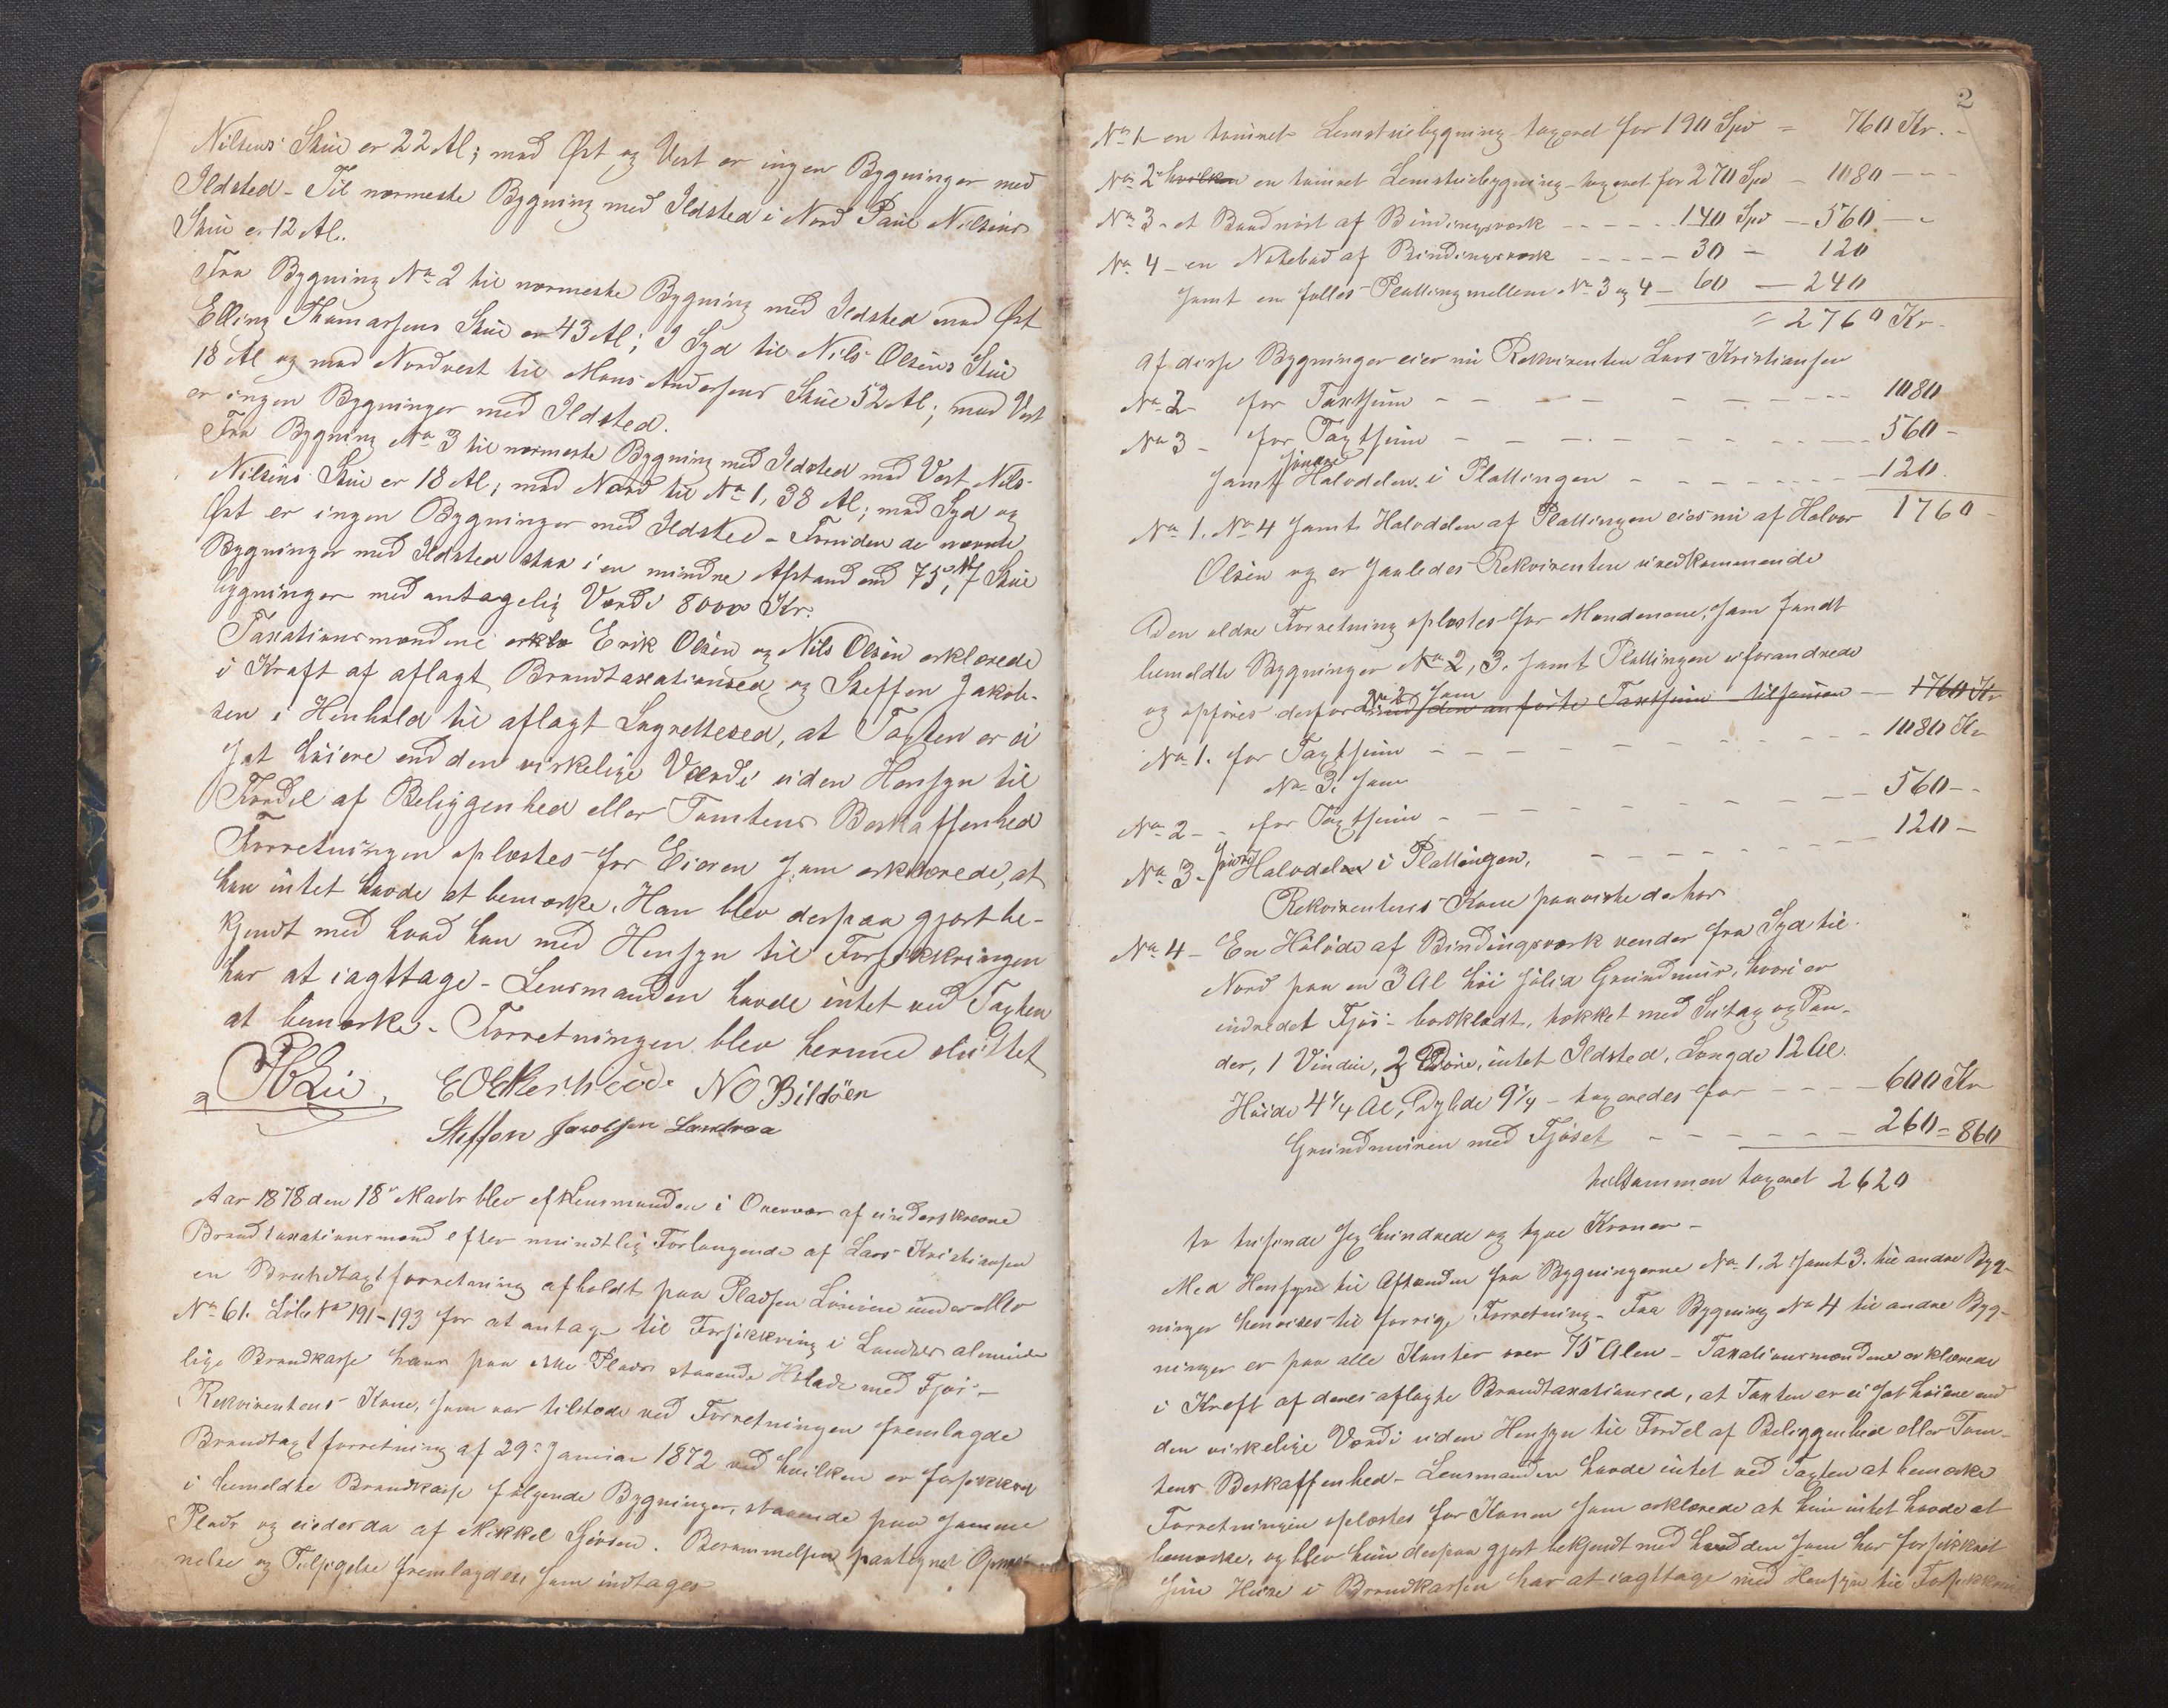 Nilsens Stue er 22 Al; mod Øst og Vest er ingen Bygninger med
Ildsted - Til nærmeste Bygning med Ildsted i Nord Paul Nilsens
Stue er 12 Al.
Fra Bygning No 2 til nærmeste Bygning med Ildsted mod Øst
Elling Thomassens Stue er 43 Al; I Syd til Nils Olsens Stue
18 Al og mod Nordvest til Mons Andersens Stue 52 Al; mod Vest
er ingen Bygninger med Ildsted.
Fra Bygning No 3 til nærmeste Bygning med Ildsted mod Vest Nils
Nilsens Stue er 18 Al; mod Nord til No 1, 38 Al; mod Syd og
Øst er ingen Bygninger med Ildsted - Foruden de nævnte
Bygninger med Ildsted staa i en mindre Afstand end 75 Al 7 Stue
bygninger med antagelig Værdi 8000 Kr.
Taxationsmændene erklæ Erik Olsen og Nils Olsen erklærede
i Kraft af aflagt Brandtaxationsed og Steffen Jakob-
sen i Henhold til aflagt Lagrettesed, at Taxten er ei
sat høiere end den virkelige Værdi uden Hensyn til
Fordel af Beliggenhed eller Tomtens Beskaffenhed
Forretningen oplæstes for Eieren som erklærede, at
han intet havde at bemærke. Han blev derpaa gjort be-
kjendt med hvad han med Hensyn til Forsikkringen
har at iagttage - Lensmanden havde intet ved Taxten
at bemærke - Forretningen blev hermed sluttet
Lie. E O Ekerhovd N O Bildöen
Steffen Jacobsen Landraa
Aar 1878 den 18de Marts blev af Lensmanden i Overvær af underskrevne
Brandtaxationsmænd efter mundtlig Forlangende af Lars Kristiansen
en Brandtaxtforretning afholdt paa Pladsen under
No 61. Løbe No 191-193 for at antage til Forsikkring i Landets alminde
lige Brandkasse hans paa Plads staaende Hølade med Fjøs -
Rekvirentens Kone, som var tilstede ved Forretningen fremlagde
Brandtaxtforretning af 29de Januar 1872 ved hvilken er forsikkret
i bemeldte Brandkasse følgende Bygninger, staaende paa samme
Plads og eiedes da af Mikkel . Berammelsen paategnet
nelse og Tilsigelse fremlagdes som indtages
2
No 1 en tømret Lemstuebygning taxeret for 190 Spd = 760 Kr. -
No 2 hvilken en tømret Lemstuebygning - taxeret for 270 Spd - 1080 - -
No 3 - et Baadnøst af Bindingsværk - - - - - 140 Spd - 560 - -
No 4 - en Notebod af Bindingsværk - - - - - 30 - 120
samt en fælles Platting mellem No 3 og 4 - 60 - 240
= 2760 Kr.
Af disse Bygninger eier nu Rekvirenten Lars Kristiansen
No 2 for Taxtsum - - - - - - 1080
No 3 - for Taxtsum - - - - - - 560 -
samt Halvdelen i Plattingen - - - - - - 120.
No 1. No 4 samt Halvdelen af Plattingen eies nu af Halvor 1760 -
Olsen og er saaledes Rekvirenten uvedkommende
Den ældre Forretning oplæstes for Mændenene, som fandt
bemeldte Bygninger No 2, 3. samt Plattingen uforandrede
og opføres derfor No 2 som den anførte Taxtsum tilsammen - 1760 Kr
No 1. for Taxtsum - - - - - - 1080 Kr
No 3. som
No 2 - - for Taxtsum - - - - - - 560 - -
No 3 - Halvdelen i Plattingen. - - - - - - 120 -
Rekvirentens Kone paaviste derhos
No 4 - En Hølade af Bindingsværk vender fra Syd til
Nord paa en 3 Al høi solid Grundmur, hvori er
indredet Fjøs - bordklædt, tækket med Sutag og Pan-
der, 1 Vindue, 2 Døre, intet Ildsted, Længde 12 Al.
Høide 4 1/4 Al, Dybde 9 1/4 - taxeredes for - - - - 600 Kr
Grundmuren med Fjøset - - - - - - 260 = 860
tilsammen taxeret 2620
to tusinde sex hundrede og tyve Kroner -
Med Hensyn til Afstanden fra Bygningerne No 1. 2 samt 3. til andre Byg-
ninger henvises til forrige Forretning - Fra Bygning No 4 til andre Byg-
ninger er paa alle Kanter over 75 Alen - Taxationsmændene erklærede
i Kraft af deres aflagte Brandtaxationsed, at Taxten er ei sat høiere end
den virkelige Værdi uden Hensyn til Fordel af Beliggenhed eller Tom-
tens Beskaffenhed - Lensmanden havde intet ved Taxten at bemærke
Forretningen oplæstes for Konen som erklærede at hun intet havde at
bemærke, og blev hun derpaa gjort bekjendt med hvad den som har forsikkret
sine Huse i Brandkassen har at iagttage med Hensyn til Forsikkrin